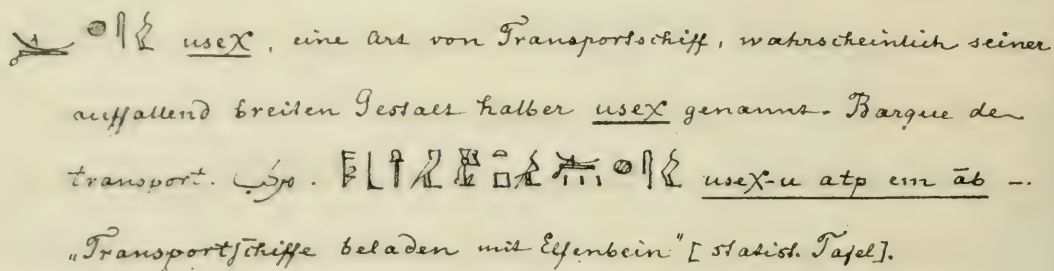 useχ, eine Art von Transportschiff, wahrscheinlich seiner
auffallend breiten Gestalt halber useχ genannt - Barque de
transport. مركب. useχ-u atp em āb -.
„Transportschiffe beladen mit Elfenbein" [statist. Tafel].